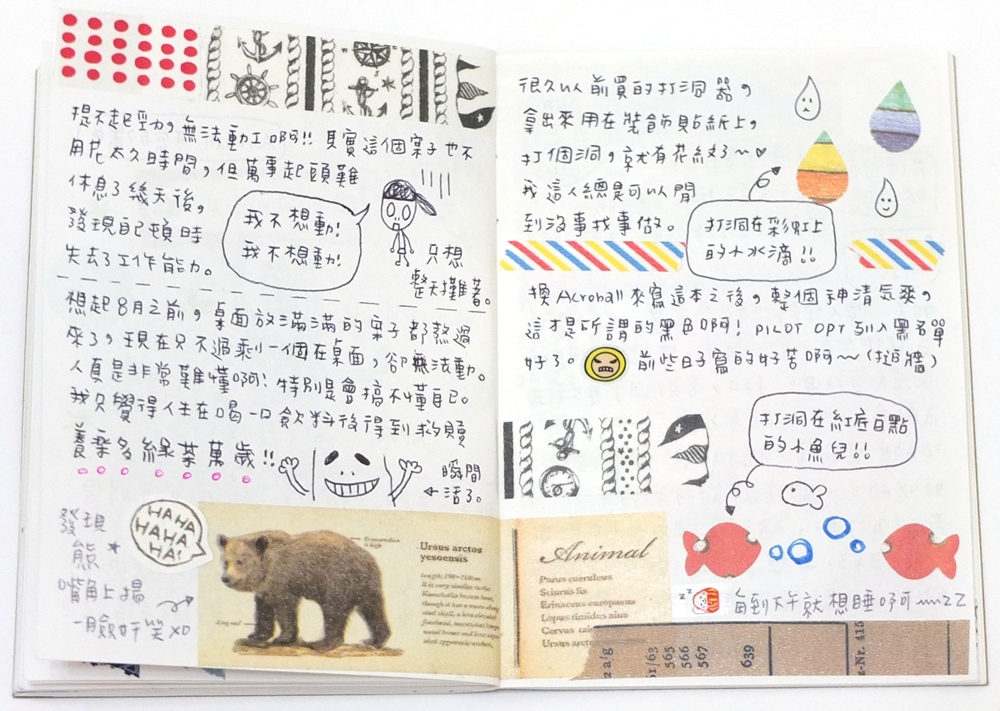 提不起勁,無法動工啊!! 其實這個案子也不
用花太久時間,但萬事起頭難
休息了幾天後,
發現自己頓時
失去了工作能力。
我不想動!
我不想動!
只想
整天攤著。
想起8月之前,桌面放滿滿的案子都熬過
來了,現在只不過剩一個在桌面,卻無法動。
人真是非常難懂啊!特別是會搞不懂自己。
我只覺得人生在喝一口飲料後得到救贖
養桑多綠茶萬歲!!
瞬間
←活了。
發現
熊★
嘴角上揚
一臉奸笑XD
HAHA
HAHA
HA!
Ursus arctos
yesoensis
很久以前買的打洞器,
拿出來用在裝飾貼紙上,
打個洞,就有花紋了~♥
我這人總是可以閒
到沒事找事做。
打洞在彩虹上
的小水滴!!
換Acroball來寫這本之後,整個神清氣爽,
這才是所謂的黑色啊! PILOT OPT列入黑名單
好了。 前些日子寫的好苦啊~(扶牆)
打洞在紅底白點
的小魚兒!!
Animal
Parus caeruleus
Sciurus lis
Erinaceus europaeus
Lepus timidus ainu
Corvus
Ursus arc
每到下午就想睡啊~zZ
2 a/g
51/63
565
566
567
639
z-Nr. 415